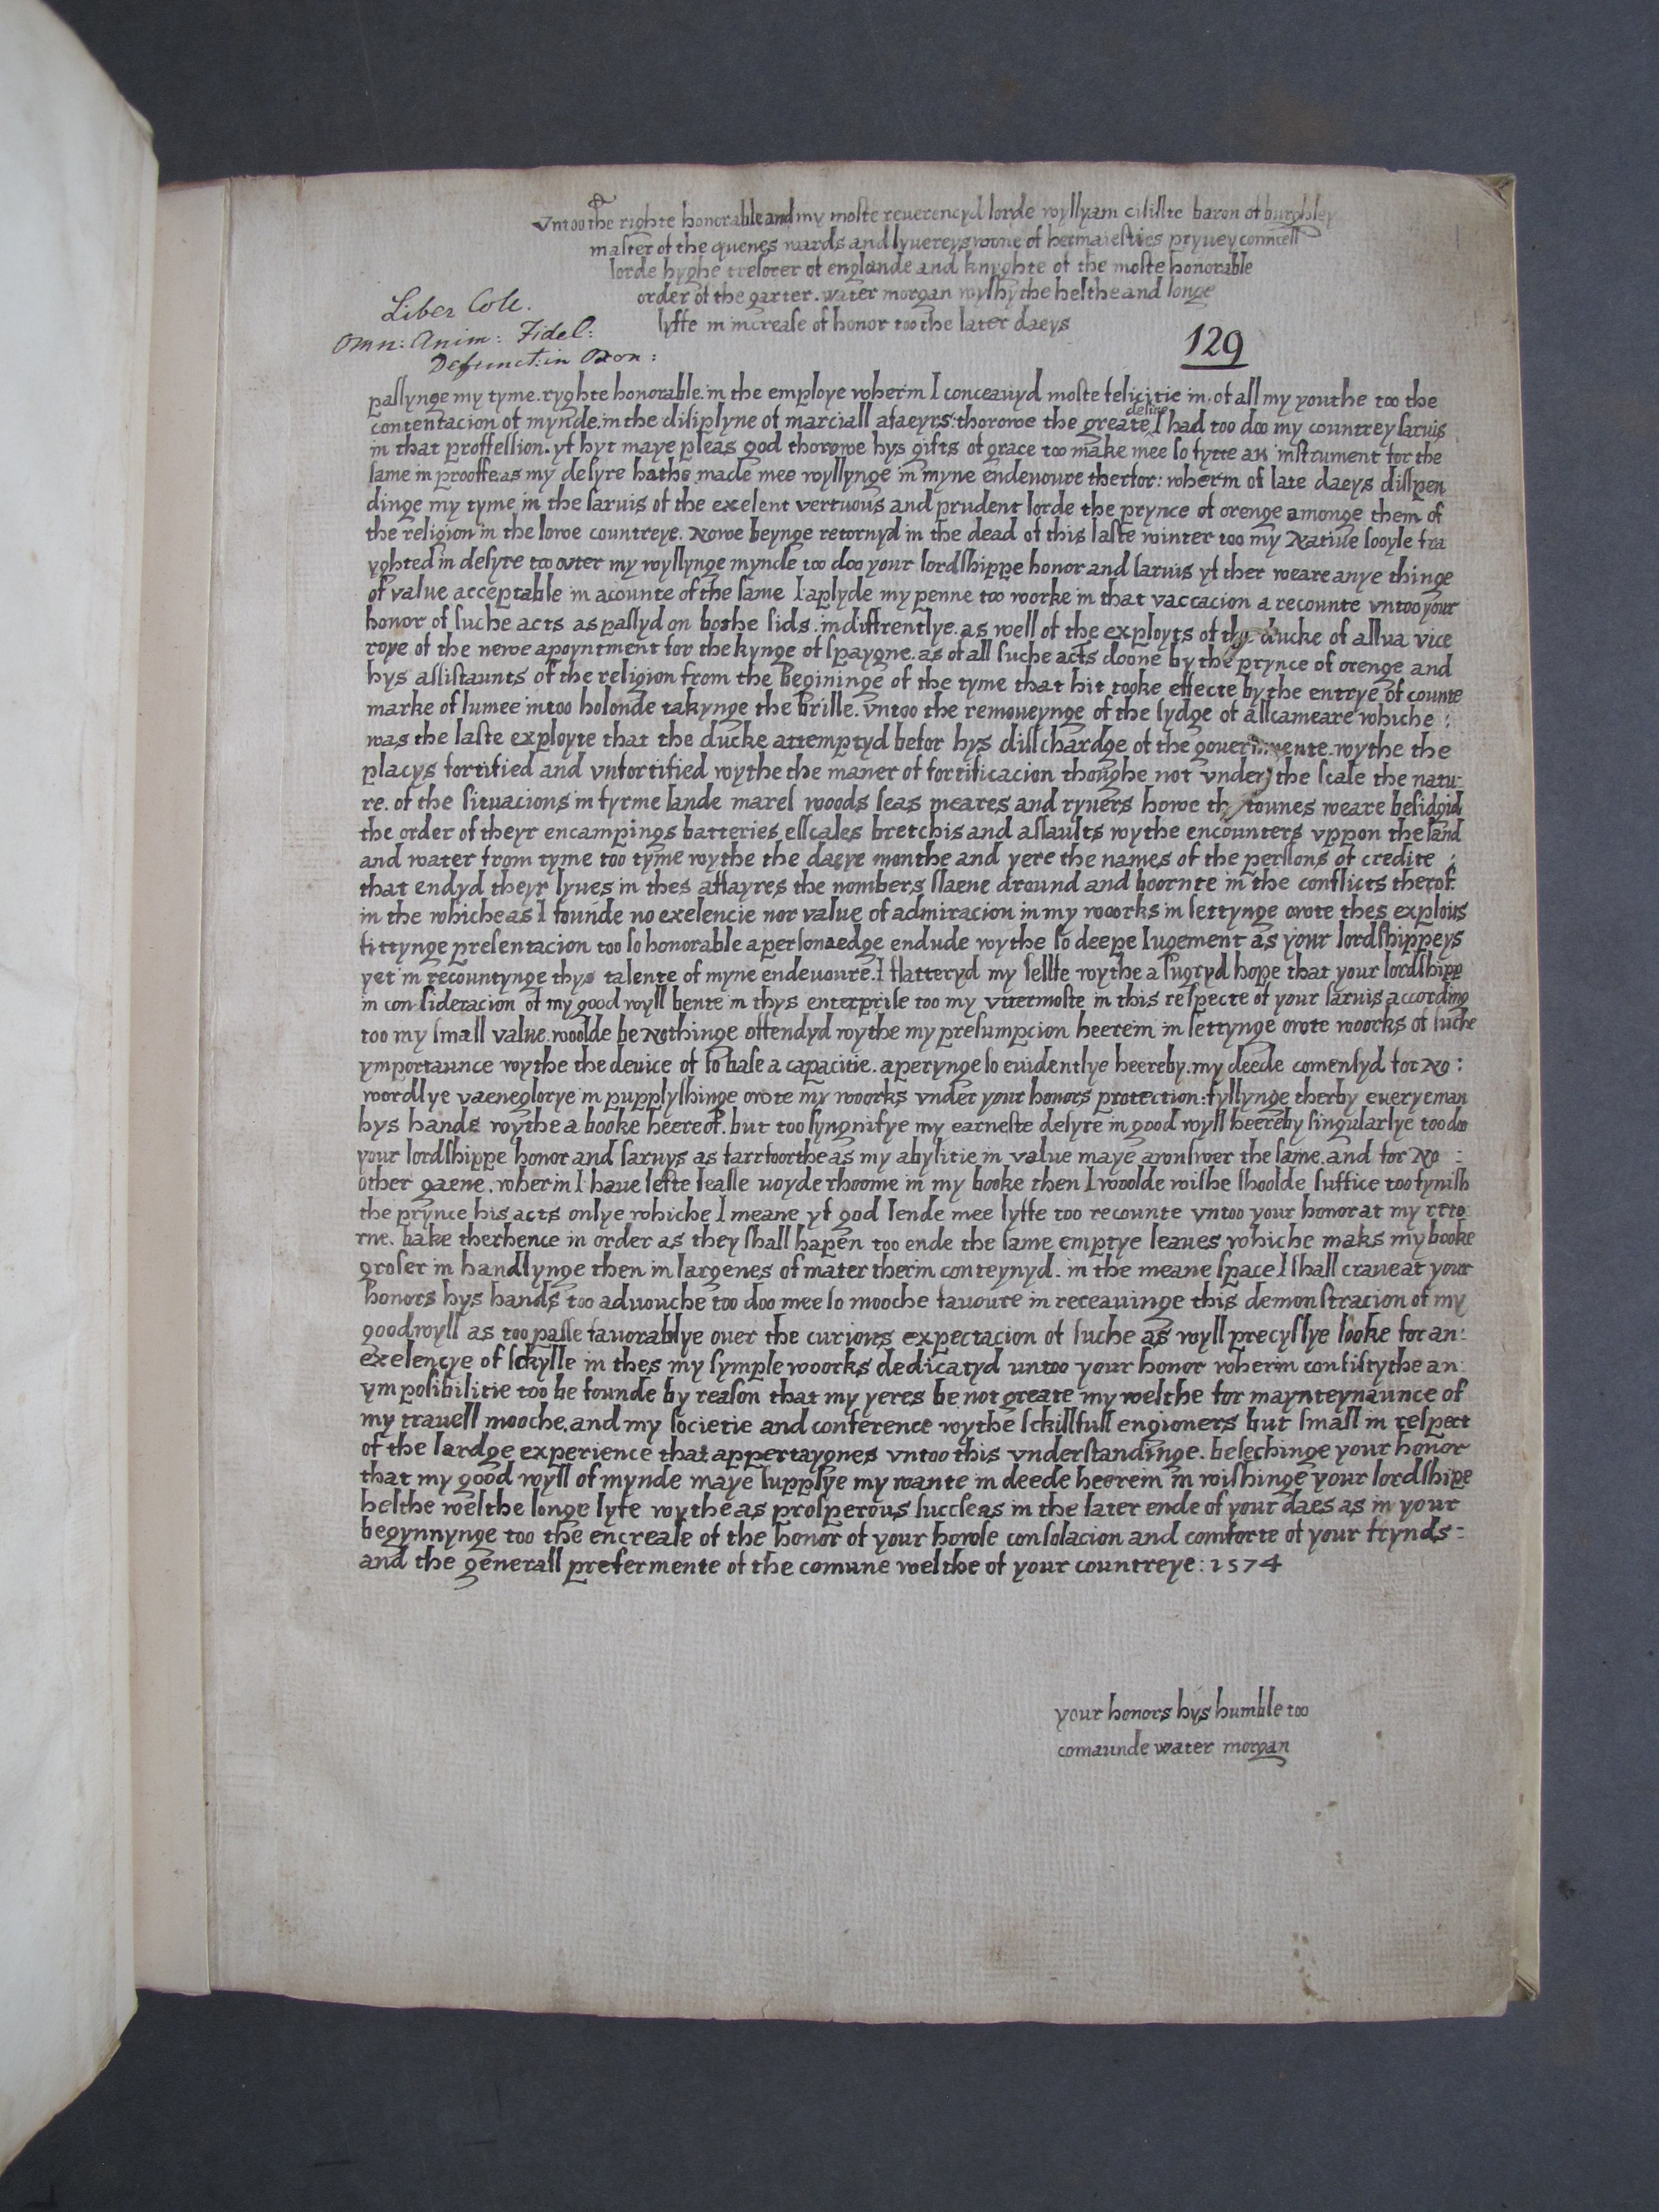 vntoo the righte honorable and my moste reuerencyd lorde wyllyam cisillte baron of burghley
master of the quenes wards and lyuereys woone of her maiesties pryuey conncell
lorde hyghe tresorer of englande and knyghte of the moste honorable
order of the garter. water morgan wyshythe helthe and longe
lyffe in increase of honor too the later daeys
Liber Coll.
Omn: Anim: Fidel:
Defunct: in Oxon:
129
passynge my tyme. ryghte honorable. in the employe wherin I conceauyd moste felicitie in. of all my youthe too the
contentacion of mynde. in the disiplyne of marciall afaeyrs: thorowe the greate desire I had too doo my countrey saruis
in that proffession. yf hyt maye pleas god thorowe hys gifts of grace too make mee so fytte an instrument for the
same in prooffe. as my desyre hathe made mee wyllynge in myne endeuoure therfor: wherin of late daeys dispen
dinge my tyme in the saruis of the exelent vertuous and prudent lorde the prynce of orenge amonge them of
the religion in the lowe countreye. Nowe beynge retornyd in the dead of this laste winter too my Natiue sooyle fra
yghted in desyre too outer my wyllynge mynde too doo your lordshippe honor and saruis yf ther weare anye thinge
of value acceptable in acounte of the same I aplyde my penne too worke in that vaccacion a recounte vntoo your
honor of suche acts as passyd on bothe sids. indiffrentlye. as well of the exployts of the ducke of allua vice
roye of the newe apoyntment for the kynge of spaygne. as of all suche acts doone by the prynce of orenge and
hys assistaunts of the religion from the begininge of the tyme that hit tooke effecte by the entrye of counte
marke of lumee intoo holonde takynge the brille. vntoo the remoueynge of the sydge of allcameare whiche :
was the laste exployte that the ducke attemptyd befor hys disschardge of the gouernmente. wythe the
placys fortified and vnfortified wythe the maner of fortificacion thoughe not vnder the scale the natu:
re. of the situacions in fyrme lande mares woods seas meares and ryuers howe the tounes weare besidgid
the order of theyr encampings batteries esscales bretchis and assaults wythe encounters vppon the land
and water from tyme too tyme wythe the daeye monthe and yere the names of the perssons of credite :
that endyd theyr lyues in thes affayres the nombers slaene dround and boornte in the conflicts therof.
in the whiche as I founde no exelencie nor value of admiracion in my woorks in settynge owte thes exploits
fittynge presentacion too so honorable a personaedge endude wythe so deepe Iugement as your lordshippeys
yet in recountynge thys talente of myne endeuoure. I flatteryd my sellfe wythe a sugryd hope that your lordshipp
in consideracion of my good wyll bente in thys enterprise too my vttermoste in this respecte of your saruis according
too my small value. woolde be Nothinge offendyd wythe my presumpcion heerein in settynge owte woorks of suche
ymportaunce wythe the deuice of so base a capacitie. aperynge so euidentlye heereby. my deede comensyd for No :
wordlye vaeneglorye in pupplyshinge owte my woorks vnder your honors protection: fyllynge therby euerye man
hys hands wythe a booke heereof. but too syngnifye my earneste desyre in good wyll heereby singularlye too doo
your lordshippe honor and saruys as farrfoorthe as my abylitie in value maye awnswer the same. and for No :
other gaene. wherin I haue lefte leasse uoyde rhoome in my booke then I woolde wishe shoolde suffice too fynish
the prynce his acts onlye whiche I meane yf god lende mee lyffe too recounte vntoo your honor at my reto
rne. bake therhence in order as they shall hapen too ende the same emptye leaues whiche maks my booke
groser in handlynge then in largenes of mater therin conteynyd. in the meane space I shall craue at your
honors hys hands too aduouche too doo mee so mooche fauoure in receauinge this demonstracion of my
good wyll as too passe fauorablye ouer the curious expectacion of suche as wyll precyslye looke for an:
exelencye of sckylle in thes my symple woorks dedicatyd untoo your honor wherin consistythe an:
ymposibilitie too be founde by reason that my yeres be not greate my welthe for maynteynaunce of
my trauell mooche. and my societie and conference wythe sckillfull engioners but small in respect
of the lardge experience that appertaygnes vntoo this vnderstandinge. besechinge your honor
that my good wyll of mynde maye supplye my wante in deede heerein in wishinge your lordshipe
helthe welthe longe lyfe wythe as prosperous succseas in the later ende of your daes as in your
begynnynge too the encrease of the honor of your howse consolacion and comforte of your frynds :
and the generall prefermente of the comune welthe of your countreye: 1574
your honors hys humble too
comaunde water morgan